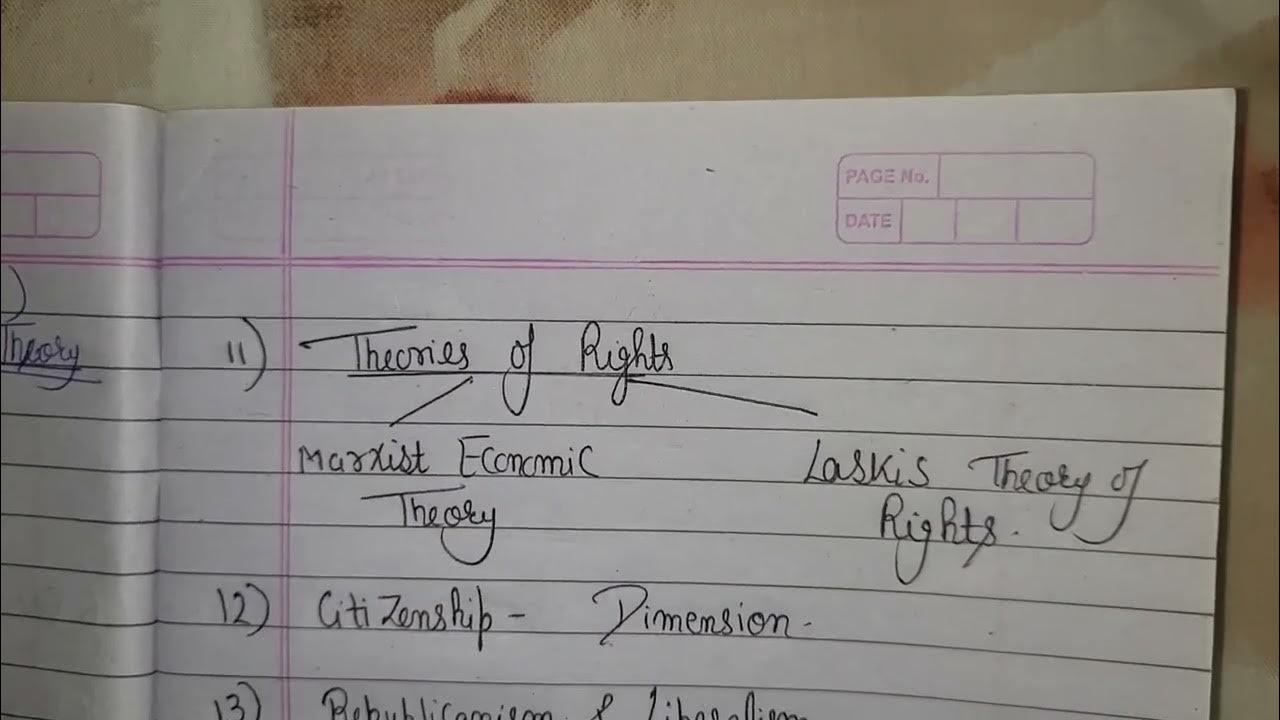 PAGE No.
DATE
)
Theory
11) Theories of Rights
Marxist Economic
Theory
Laskis Theory of
Rights.
12) Citizenship - Dimension.
13) Republicanism & Liberalism